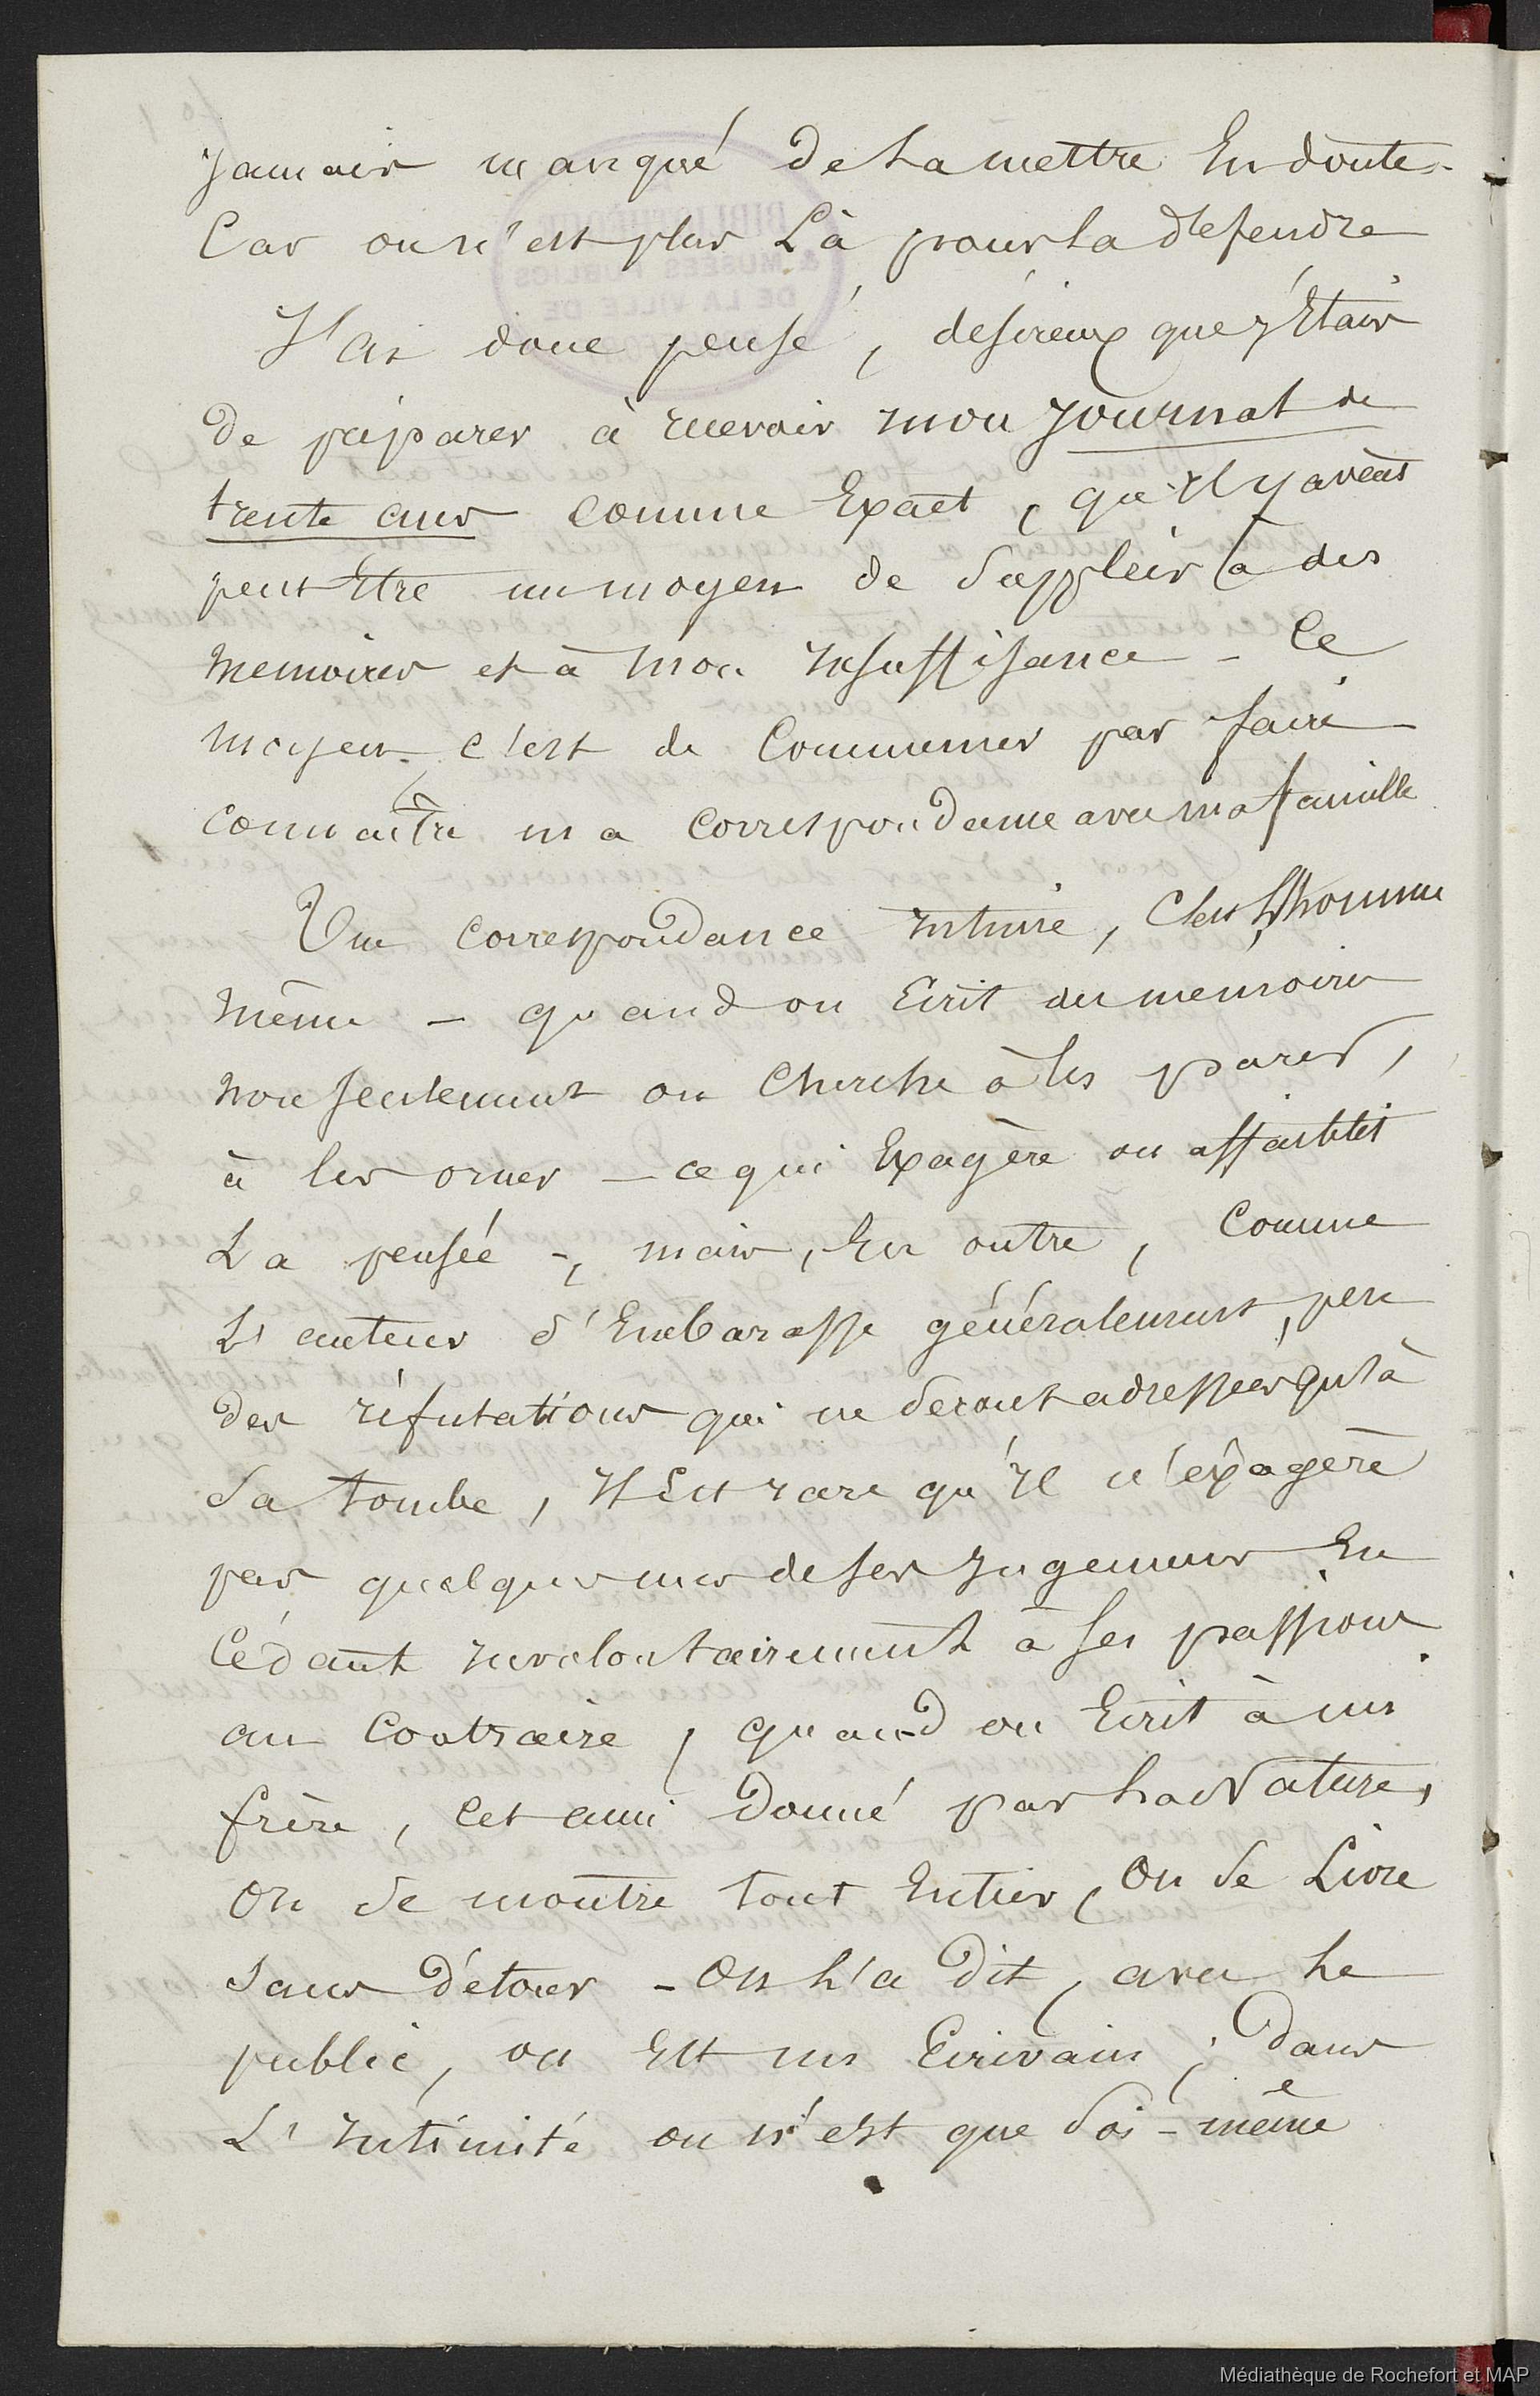 jamais manqué de la mettre en doute -
Car on n'est plus là pour la défendre
J'ai donc pensé, désireux que j'étais
de préparer à recevoir mon journal de
trente ans comme exact, qu'il y avait
peut être un moyen de suppléer à des
mémoires et à mon insuffisance - Ce
moyen, c'est de commencer par faire
connaître ma correspondance avec ma famille
Une correspondance intime, c'est l'homme
même - quand on écrit des mémoires
non seulement on cherche à les parer,
à les orner - ce qui exagère ou affaiblit
la pensée -, mais, en outre, comme
l'auteur s'embarasse généralement peu
des réfutations qui ne seront adressées qu'à
sa tombe, il est rare qu'il n'exagère
pas quelques uns de ses jugemens en
cédant involontairement à ses passions.
au contraire, quand on écrit à un
frère, cet ami donné par la Nature,
on se montre tout entier, on se livre
sans détour - on l'a dit, avec le
public, on est un écrivain ; dans
l'intimité on n'est que soi-même
Médiathèque de Rochefort et MAP